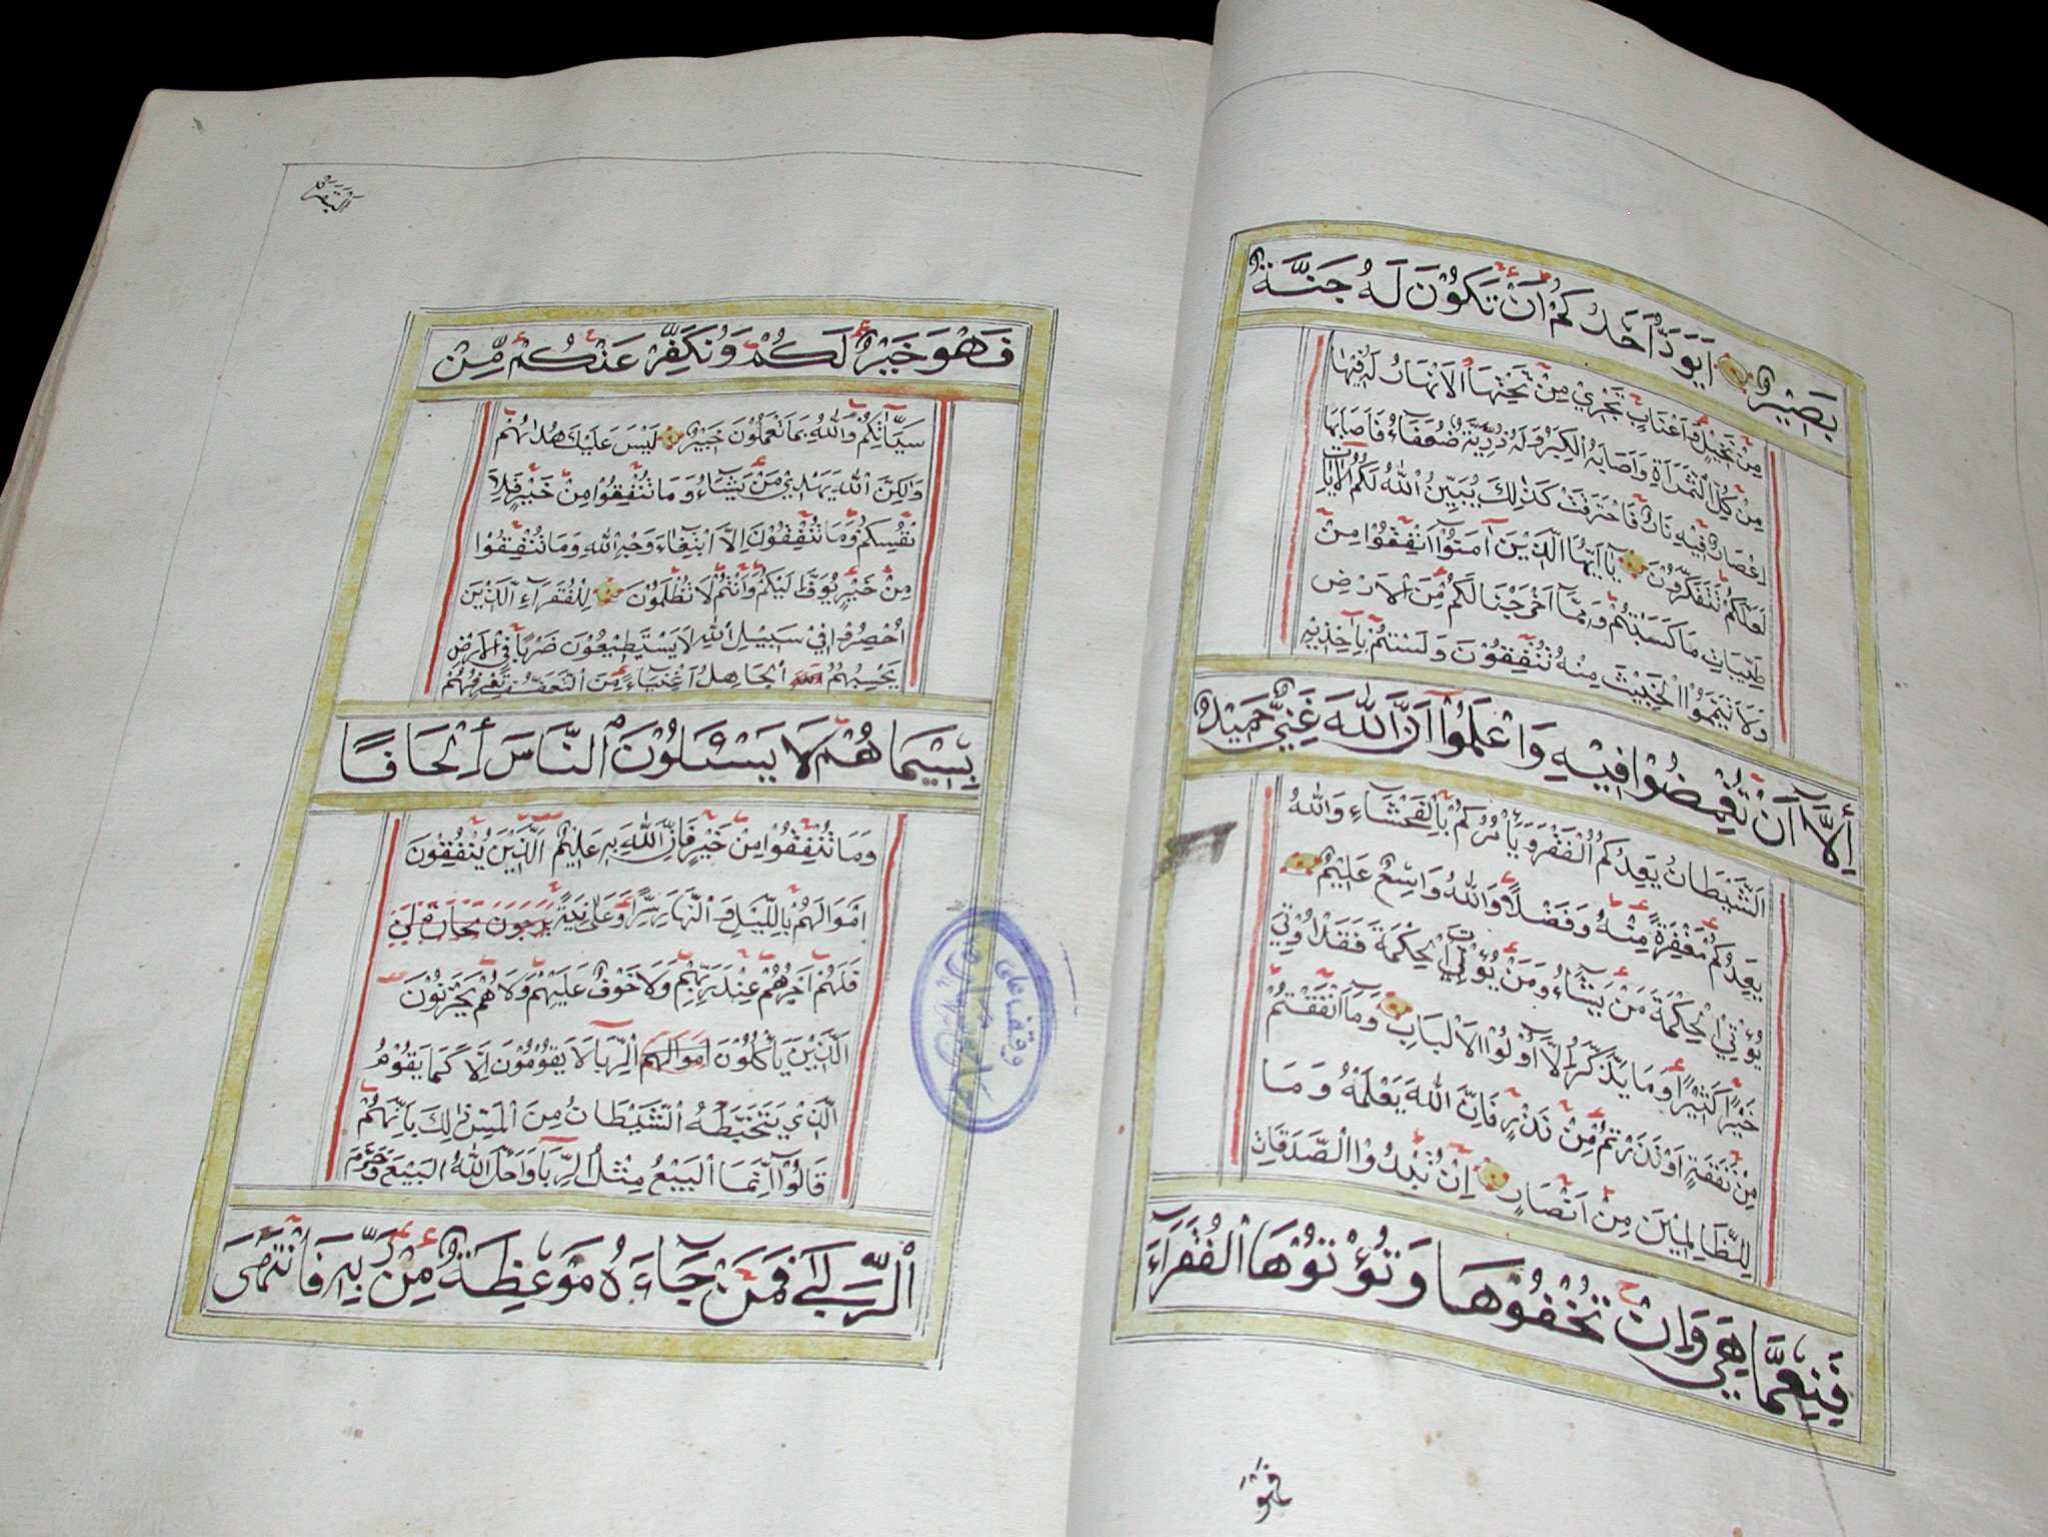 بَصِيْرٌ اَيَوَدُّ اَحَدُكُمْ اَنْ تَكُوْنَ لَهُ جَنَّةٌ
مِنْ نَخِيْلٍ وَّاَعْنَابٍ تَجْرِيْ مِنْ تَحْتِهَا الْاَنْهَارُ لَهُ فِيْهَا
مِنْ كُلِّ الثَّمَرَاةِ وَاَصَابَهُ الْكِبَرُ وَلَهُ ذُرِّيَّةٌ ضُعَفَاءُ فَاَصَابَهَا
اِعْصَارٌ فِيْهِ نَارٌ فَاحْتَرَقَتْ كَذٰلِكَ يُبَيِّنُ اللّٰهُ لَكُمُ الْاٰيَاتِ
لَعَلَّكُمْ تَتَفَكَّرُوْنَ يَا اَيُّهَا الَّذِيْنَ اٰمَنُوْا اَنْفِقُوْا مِنْ
طَيِّبَاتِ مَا كَسَبْتُمْ وَمِمَّا اَخْرَجْنَا لَكُمْ مِّنَ الْاَرْضِ
وَلَا تَيَمَّمُوا الْخَبِيْثَ مِنْهُ تُنْفِقُوْنَ وَلَسْتُمْ بِاٰخِذِيْهِ
اِلَّا اَنْ تُغْمِضُوْا فِيْهِ وَاعْلَمُوْا اَنَّ اللّٰهَ غَنِيٌّ حَمِيْدٌ
الشَّيْطَانُ يَعِدُكُمُ الْفَقْرَ وَيَأْمُرُكُمْ بِالْفَحْشَاءِ وَاللّٰهُ
يَعِدُكُمْ مَغْفِرَةً مِنْهُ وَفَضْلًا وَاللّٰهُ وَاسِعٌ عَلِيْمٌ
يُؤْتِي الْحِكْمَةَ مَنْ يَشَاءُ وَمَنْ يُؤْتَ الْحِكْمَةَ فَقَدْ اُوْتِيَ
خَيْرًا كَثِيْرًا وَمَا يَذَّكَّرُ اِلَّا اُوْلُوا الْاَلْبَابِ وَمَا اَنْفَقْتُمْ
مِنْ نَفَقَةٍ اَوْ نَذَرْتُمْ مِنْ نَذْرٍ فَاِنَّ اللّٰهَ يَعْلَمُهُ وَمَا
لِلظَّالِمِيْنَ مِنْ اَنْصَارٍ اِنْ تُبْدُوا الصَّدَقَاتِ
فَنِعِمَّا هِيَ وَاِنْ تُخْفُوْهَا وَتُؤْتُوْهَا الْفُقَرَاءَ
فهو
اَلْبَقَرَة
فَهُوَ خَيْرٌ لَكُمْ وَنُكَفِّرْ عَنْكُمْ مِّنْ
سَيِّاٰتِكُمْ وَاللّٰهُ بِمَا تَعْمَلُوْنَ خَبِيْرٌ لَيْسَ عَلَيْكَ هُدٰىهُمْ
وَلٰكِنَّ اللّٰهَ يَهْدِيْ مَنْ يَشَاءُ وَمَا تُنْفِقُوْا مِنْ خَيْرٍ فَلِاَ
نْفُسِكُمْ وَمَا تُنْفِقُوْنَ اِلَّا ابْتِغَاءَ وَجْهِ اللّٰهِ وَمَا تُنْفِقُوْا
مِنْ خَيْرٍ يُوَفَّ اِلَيْكُمْ وَاَنْتُمْ لَا تُظْلَمُوْنَ لِلْفُقَرَاءِ الَّذِيْنَ
اُحْصِرُوْا فِيْ سَبِيْلِ اللّٰهِ لَا يَسْتَطِيْعُوْنَ ضَرْبًا فِي الْاَرْضِ
يَحْسِبُهُمُ الْجَاهِلُ اَغْنِيَاءَ مِنَ التَّعَفُّفِ تَعْرِفُهُمْ
بِسِيْمَاهُمْ لَا يَسْئَلُوْنَ النَّاسَ اِلْحَافًا
وَمَا تُنْفِقُوْا مِنْ خَيْرٍ فَاِنَّ اللّٰهَ بِهِ عَلِيْمٌ اَلَّذِيْنَ يُنْفِقُوْنَ
اَمْوَالَهُمْ بِاللَّيْلِ وَالنَّهَارِ سِرًّا وَّعَلَانِيَةً يَرْجُوْنَ تِجَارَةً لَنْ
فَلَهُمْ اَجْرُهُمْ عِنْدَ رَبِّهِمْ وَلَا خَوْفٌ عَلَيْهِمْ وَلَا هُمْ يَحْزَنُوْنَ
اَلَّذِيْنَ يَأْكُلُوْنَ اَمْوَالَهُمْ الرِّبَا لَا يَقُوْمُوْنَ اِلَّا كَمَا يَقُوْمُ
الَّذِيْ يَتَخَبَّطُهُ الشَّيْطَانُ مِنَ الْمَسِّ ذٰلِكَ بِاَنَّهُمْ
قَالُوْا اِنَّمَا الْبَيْعُ مِثْلُ الرِّبَا وَاَحَلَّ اللّٰهُ الْبَيْعَ وَحَرَّمَ
الرِّبٰى فَمَنْ جَاءَهُ مَوْعِظَةٌ مِنْ رَّبِّهِ فَانْتَهَى
وقف على